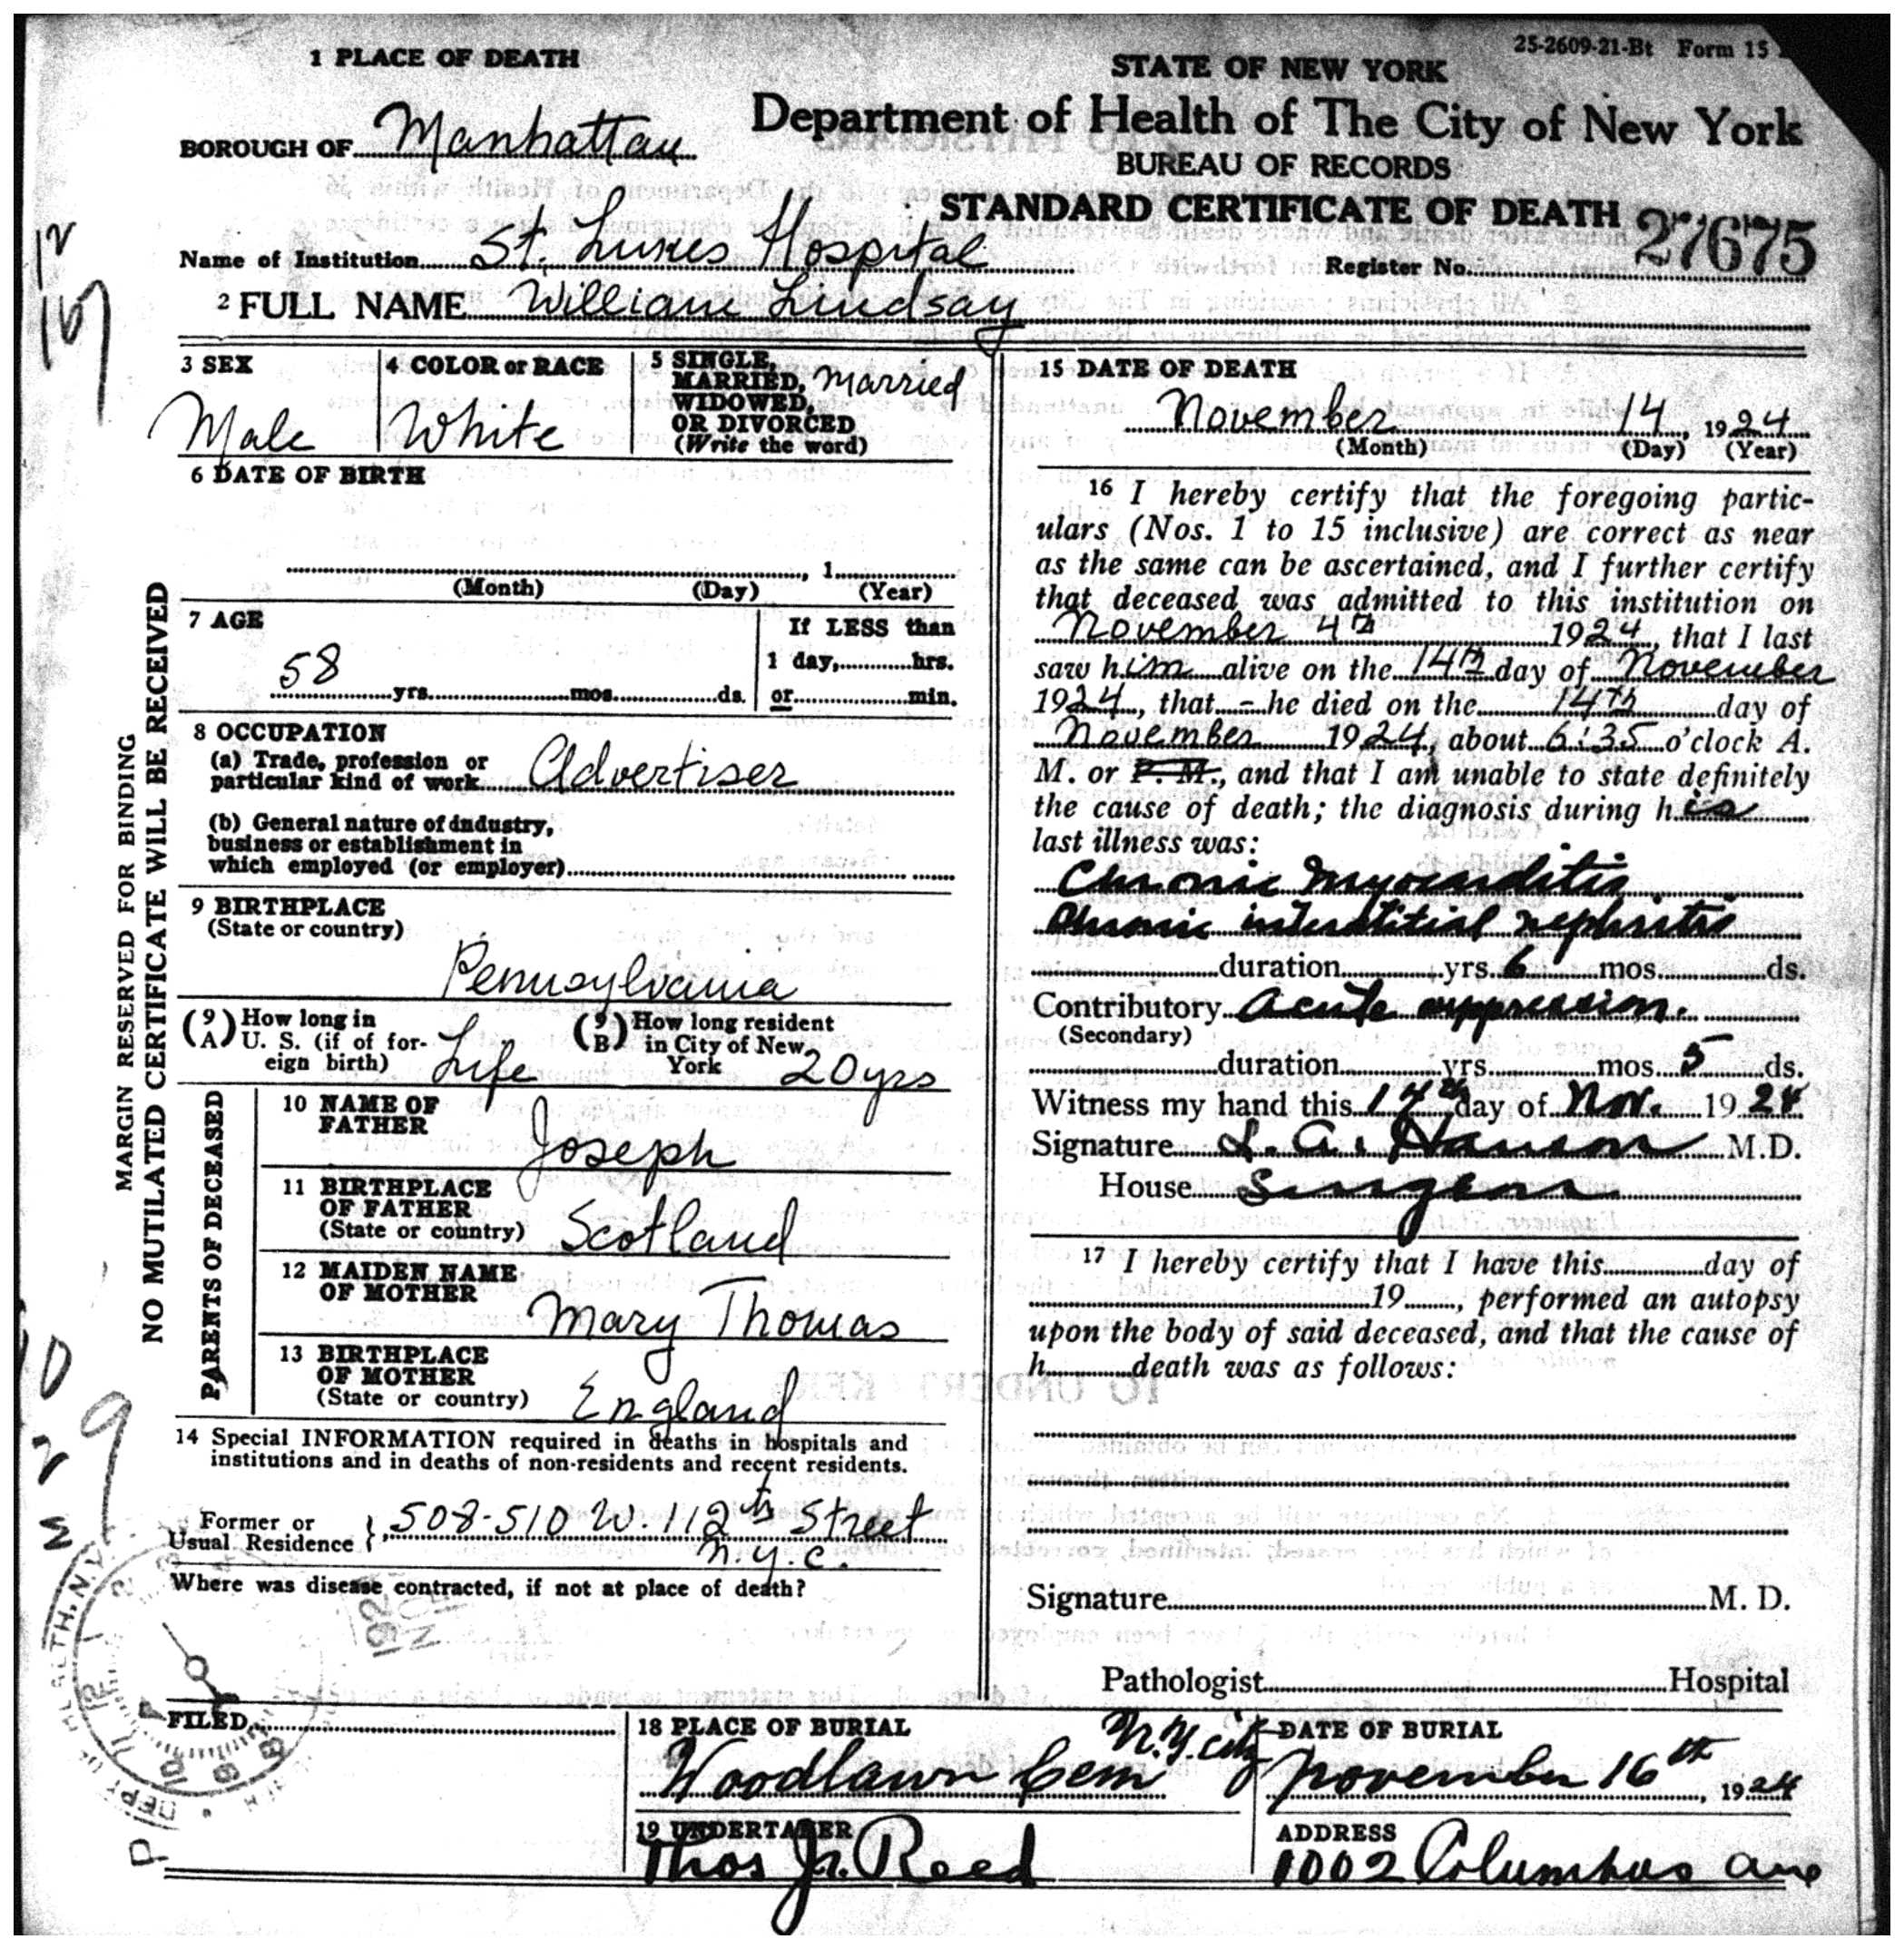 25-2609-21-Bt Form 15
1 PLACE OF DEATH
STATE OF NEW YORK
Department of Health of The City of New York
BUREAU OF RECORDS
BOROUGH OF Manhattan
STANDARD CERTIFICATE OF DEATH
Name of Institution St. Lukes Hospital
Register No. 27675
2 FULL NAME William Lindsay
3 SEX
Male
4 COLOR or RACE
White
5 SINGLE,
MARRIED,
WIDOWED,
OR DIVORCED
(Write the word)
Married
6 DATE OF BIRTH
, 1
(Month) (Day) (Year)
7 AGE
58 yrs. mos. ds.
If LESS than
1 day, hrs.
or min.
8 OCCUPATION
(a) Trade, profession or
particular kind of work Advertiser
(b) General nature of industry,
business or establishment in
which employed (or employer)
9 BIRTHPLACE
(State or country)
Pennsylvania
(9 A) How long in
U. S. (if of for-
eign birth) Life
(9 B) How long resident
in City of New
York 20 yrs
PARENTS OF DECEASED
10 NAME OF
FATHER
Joseph
11 BIRTHPLACE
OF FATHER
(State or country) Scotland
12 MAIDEN NAME
OF MOTHER
Mary Thomas
13 BIRTHPLACE
OF MOTHER
(State or country) England
14 Special INFORMATION required in deaths in hospitals and
institutions and in deaths of non-residents and recent residents.
Former or
Usual Residence } 508-510 W. 112th Street
N.Y.C.
Where was disease contracted, if not at place of death?
FILED
15 DATE OF DEATH
November 14, 1924
(Month) (Day) (Year)
16 I hereby certify that the foregoing partic-
ulars (Nos. 1 to 15 inclusive) are correct as near
as the same can be ascertained, and I further certify
that deceased was admitted to this institution on
November 4th 1924, that I last
saw him alive on the 14th day of November
1924, that - he died on the 14th day of
November 1924, about 6:35 o'clock A.
M. or P. M., and that I am unable to state definitely
the cause of death; the diagnosis during his
last illness was:
Chronic myocarditis
Chronic interstitial nephritis
duration yrs. 6 mos. ds.
Contributory Acute suppression.
(Secondary)
duration yrs. mos. 5 ds.
Witness my hand this 14th day of Nov. 1924
Signature L. A. Hanson M.D.
House Surgeon
17 I hereby certify that I have this day of
19 , performed an autopsy
upon the body of said deceased, and that the cause of
h death was as follows:
Signature M. D.
Pathologist Hospital
18 PLACE OF BURIAL
N.Y. City
Woodlawn Cem
DATE OF BURIAL
November 16th, 1924
19 UNDERTAKER
Thos J. Reed
ADDRESS
1002 Columbus Ave
MARGIN RESERVED FOR BINDING
NO MUTILATED CERTIFICATE WILL BE RECEIVED